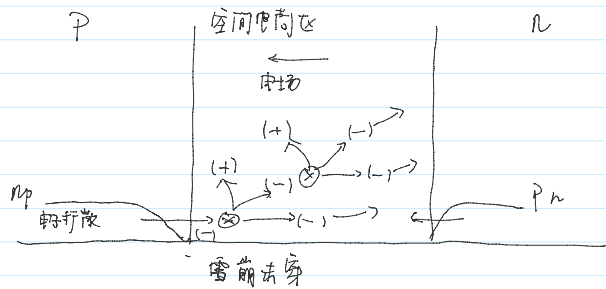 P 空间电荷区 n
电场
(+) (-)
(+) (-) (-)
np 电子扩散 (-) (-) Pn
雪崩击穿